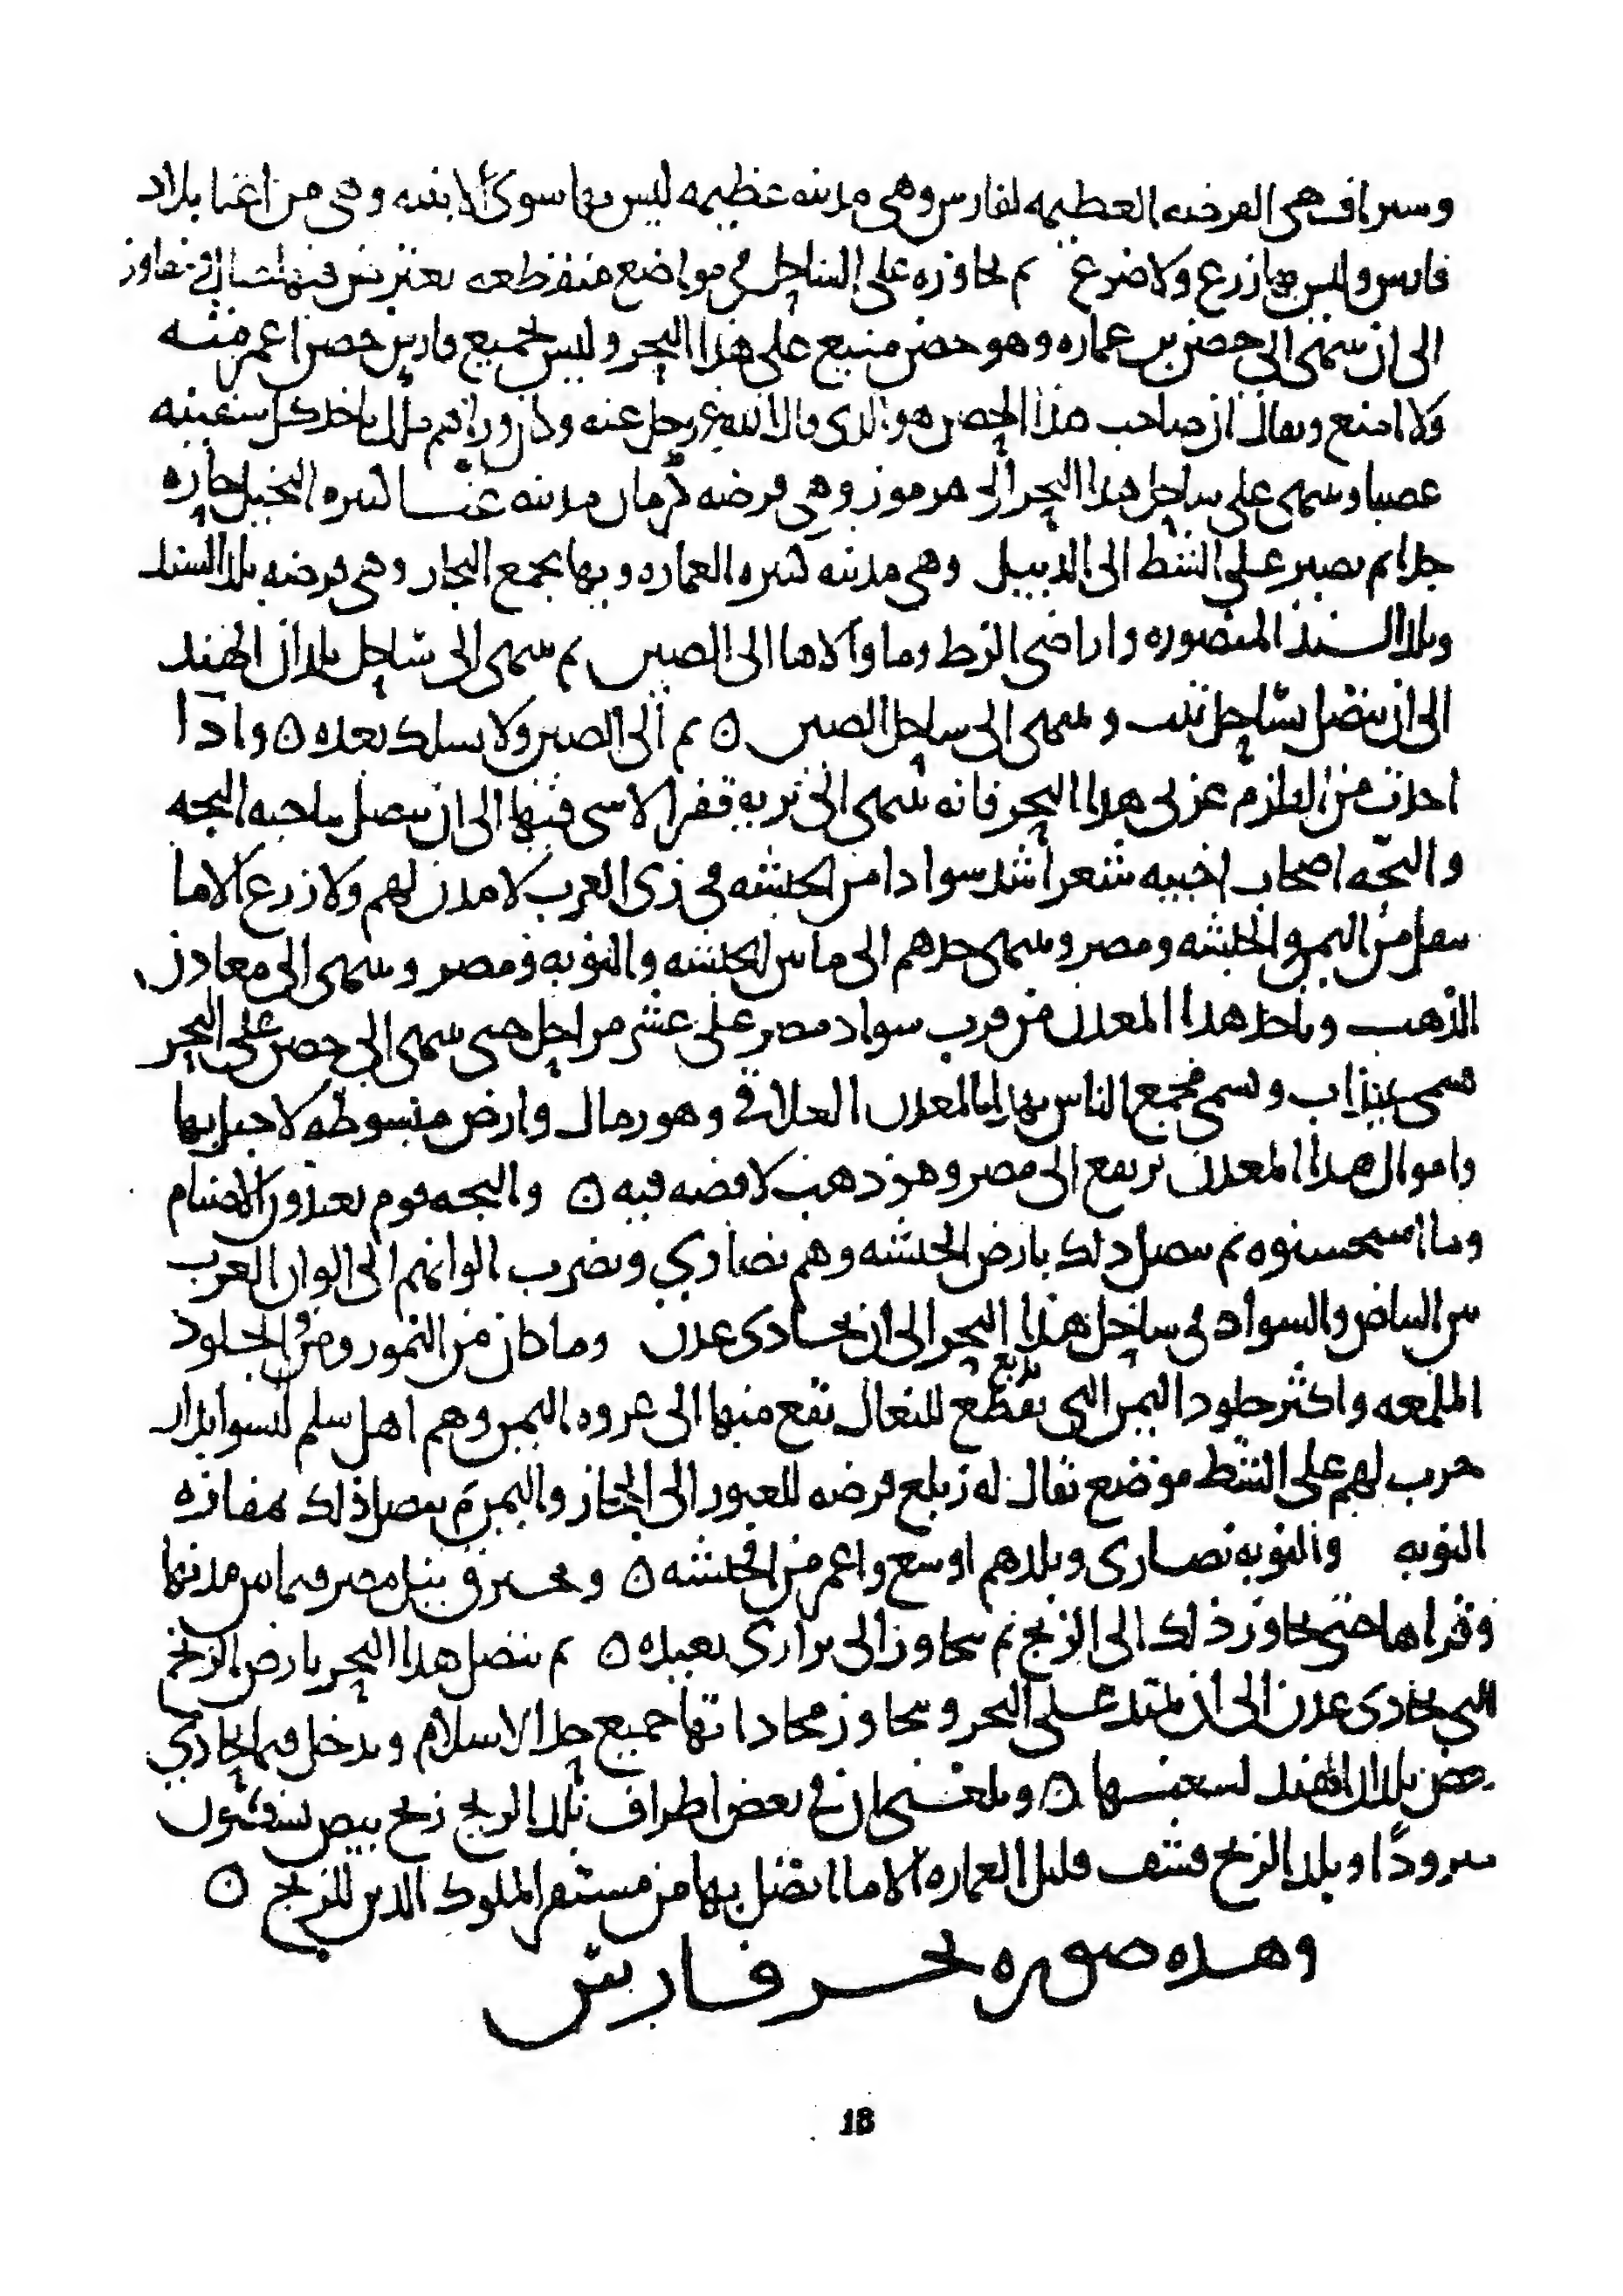 وسيراف هى الفرضه العظيمه لفارس وهى مدينه عظيمه ليس بها سوى الابنيه وهى من اغنا بلاد
فارس وليس بها زرع ولا ضرع ثم تجاوزه على الساحل فى مواضع منقطعه تعترض فيها جبال ومفاوز
الى ان ينتهى الى حصن بن عماره وهو حصن منيع على هذا البحر وليس بجميع فارس حصن اعمر منه
ولا امنع ويقال ان صاحب هذا الحصن هو الذى قال الله عز وجل عنه وكان وراهم ملك ياخذ كل سفينه
غصبا وينتهى على ساحل هذا البحر الى هرموز وهى فرضه كرمان مدينه غنا كثيره النخيل حاره
جدا ثم يصير على الشط الى الديبل وهى مدينه كثيره العماره وبها مجمع التجار وهى فرضه بلد السند
وبلد السند المنصوره واراضى الزط وما والاها الى الصين ثم ينتهى الى ساحل بلدان الهند
الى ان يتصل بساحل تبت وينتهى الى ساحل الصين ٥ ثم الى الصين ولا يسلك بعده ٥ واذا
اخذت من القلزم غربى هذا البحر فانه ينتهى الى بريه قفر لا شى فيها الى ان يتصل بناحيه البجه
والبجه اصحاب اخبيه شعر اشد سوادا من الحبشه فى زى العرب لا مدن لهم ولا زرع الا ما
ينقل من اليمن والحبشه ومصر وينتهى حدهم الى ما بين الحبشه والنوبه ومصر وينتهى الى معادن
الذهب وياخذ هذا المعدن من قرب سواد مصر على عشر مراحل حتى ينتهى الى حصن على البحر
يسمى عيذاب ويسمى مجمع الناس بهذا المعدن العلاقى وهو رمال وارض مبسوطه لا جبل بها
واموال هذا المعدن ترتفع الى مصر وهو ذهب لا فضه فيه ٥ والبجه قوم يعبدون الاصنام
وما استحسنوه ثم يتصل ذلك بارض الحبشه وهم نصارى وتضرب الوانهم الى الوان العرب
بين البياض والسواد فى ساحل هذا البحر الى ان يحاذى عدن وما كان من النمور ومن الجلود
الملمعه واكثر جلود اليمن التى تقطع تدبغ للنعال تقع منها الى عدوه اليمن وهم اهل سلم ليسوا بدار
حرب لهم على الشط موضع يقال له زيلع فرضه للعبور الى الحجاز واليمن ثم يتصل ذلك بمفازه
النوبه والنوبه نصارى وبلدهم اوسع واعمر من الحبشه ٥ ويخترق نيل مصر فيما بين مدنها
وقراها حتى يجاوز ذلك الى الزنج ثم يجاوز الى برارى بعيده ٥ ثم يتصل هذا البحر بارض الزنج
التى تحاذى عدن الى ان يمتد على البحر ويجاوز محاذاتها جميع حد الاسلام ويدخل فيما يحاذى
بعض بلدان الهند لسعتها ٥ وبلغنى ان فى بعض اطراف بلد الزنج زنج بيض
سرودا وبلد الزنج قشف قليل العماره الا ما اتصل بها من مستقر الملوك الذين للزنج ٥
وهذه صوره بحر فارس
18